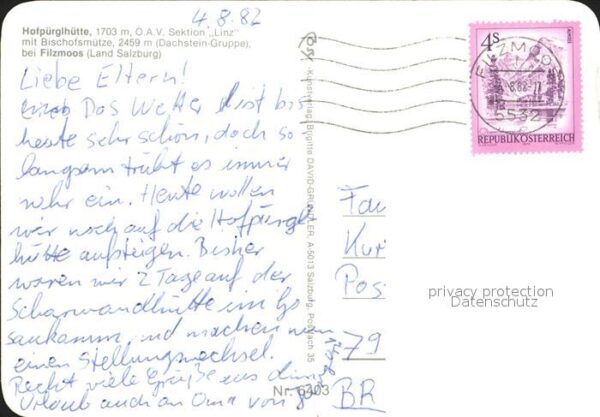 4.8.82
Hofpürglhütte, 1703 m, Ö.A.V. Sektion „Linz"
mit Bischofsmütze, 2459 m (Dachstein-Gruppe),
bei Filzmoos (Land Salzburg)
Liebe Eltern!
Das Wetter ist bis
heute sehr schön, doch so
langsam trübt es immer
mehr ein. Heute wollen
wir noch auf die Hofpürgl-
hütte aufsteigen. Bisher
waren wir 2 Tage auf der
im Go-
saukamm, und machen nun
einen Stellungswechsel.
Recht viele Grüße aus dem
Urlaub auch an Oma von
Kunstverlag Brigitte DAVID-GRUNDLER, A-5013 Salzburg, Postfach 35
Nr. 6403
4S
FILZMOOS
5532
REPUBLIK ÖSTERREICH
Fau
Kur
Pos
79
BR
privacy protection
Datenschutz